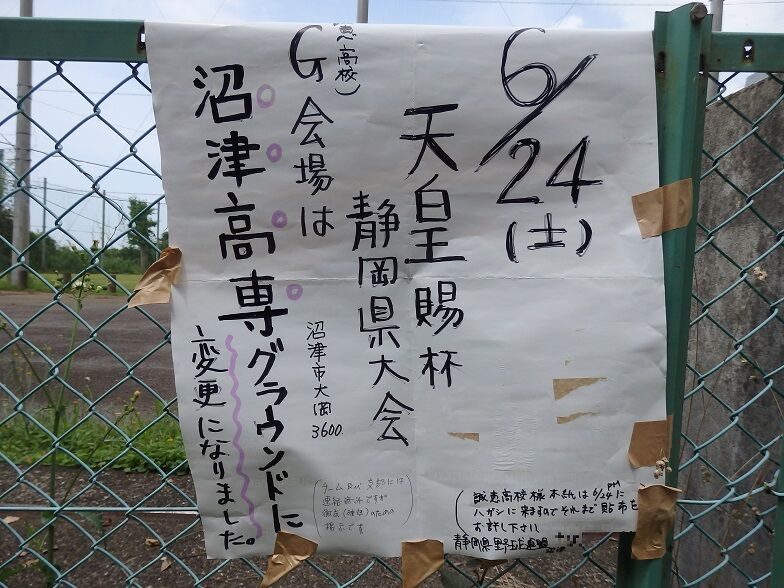 6/24
(土)
天皇賜杯
静岡県大会
G会場は
沼津高専グラウンドに
変更になりました。
沼津市大岡
3600.
(チーム及び支部には
連絡済みですが
の
掲示です)
高校様 本紙は6/24 PMに
ハガシに来ますのでそれまで貼布を
お許し下さい
静岡県野球連盟